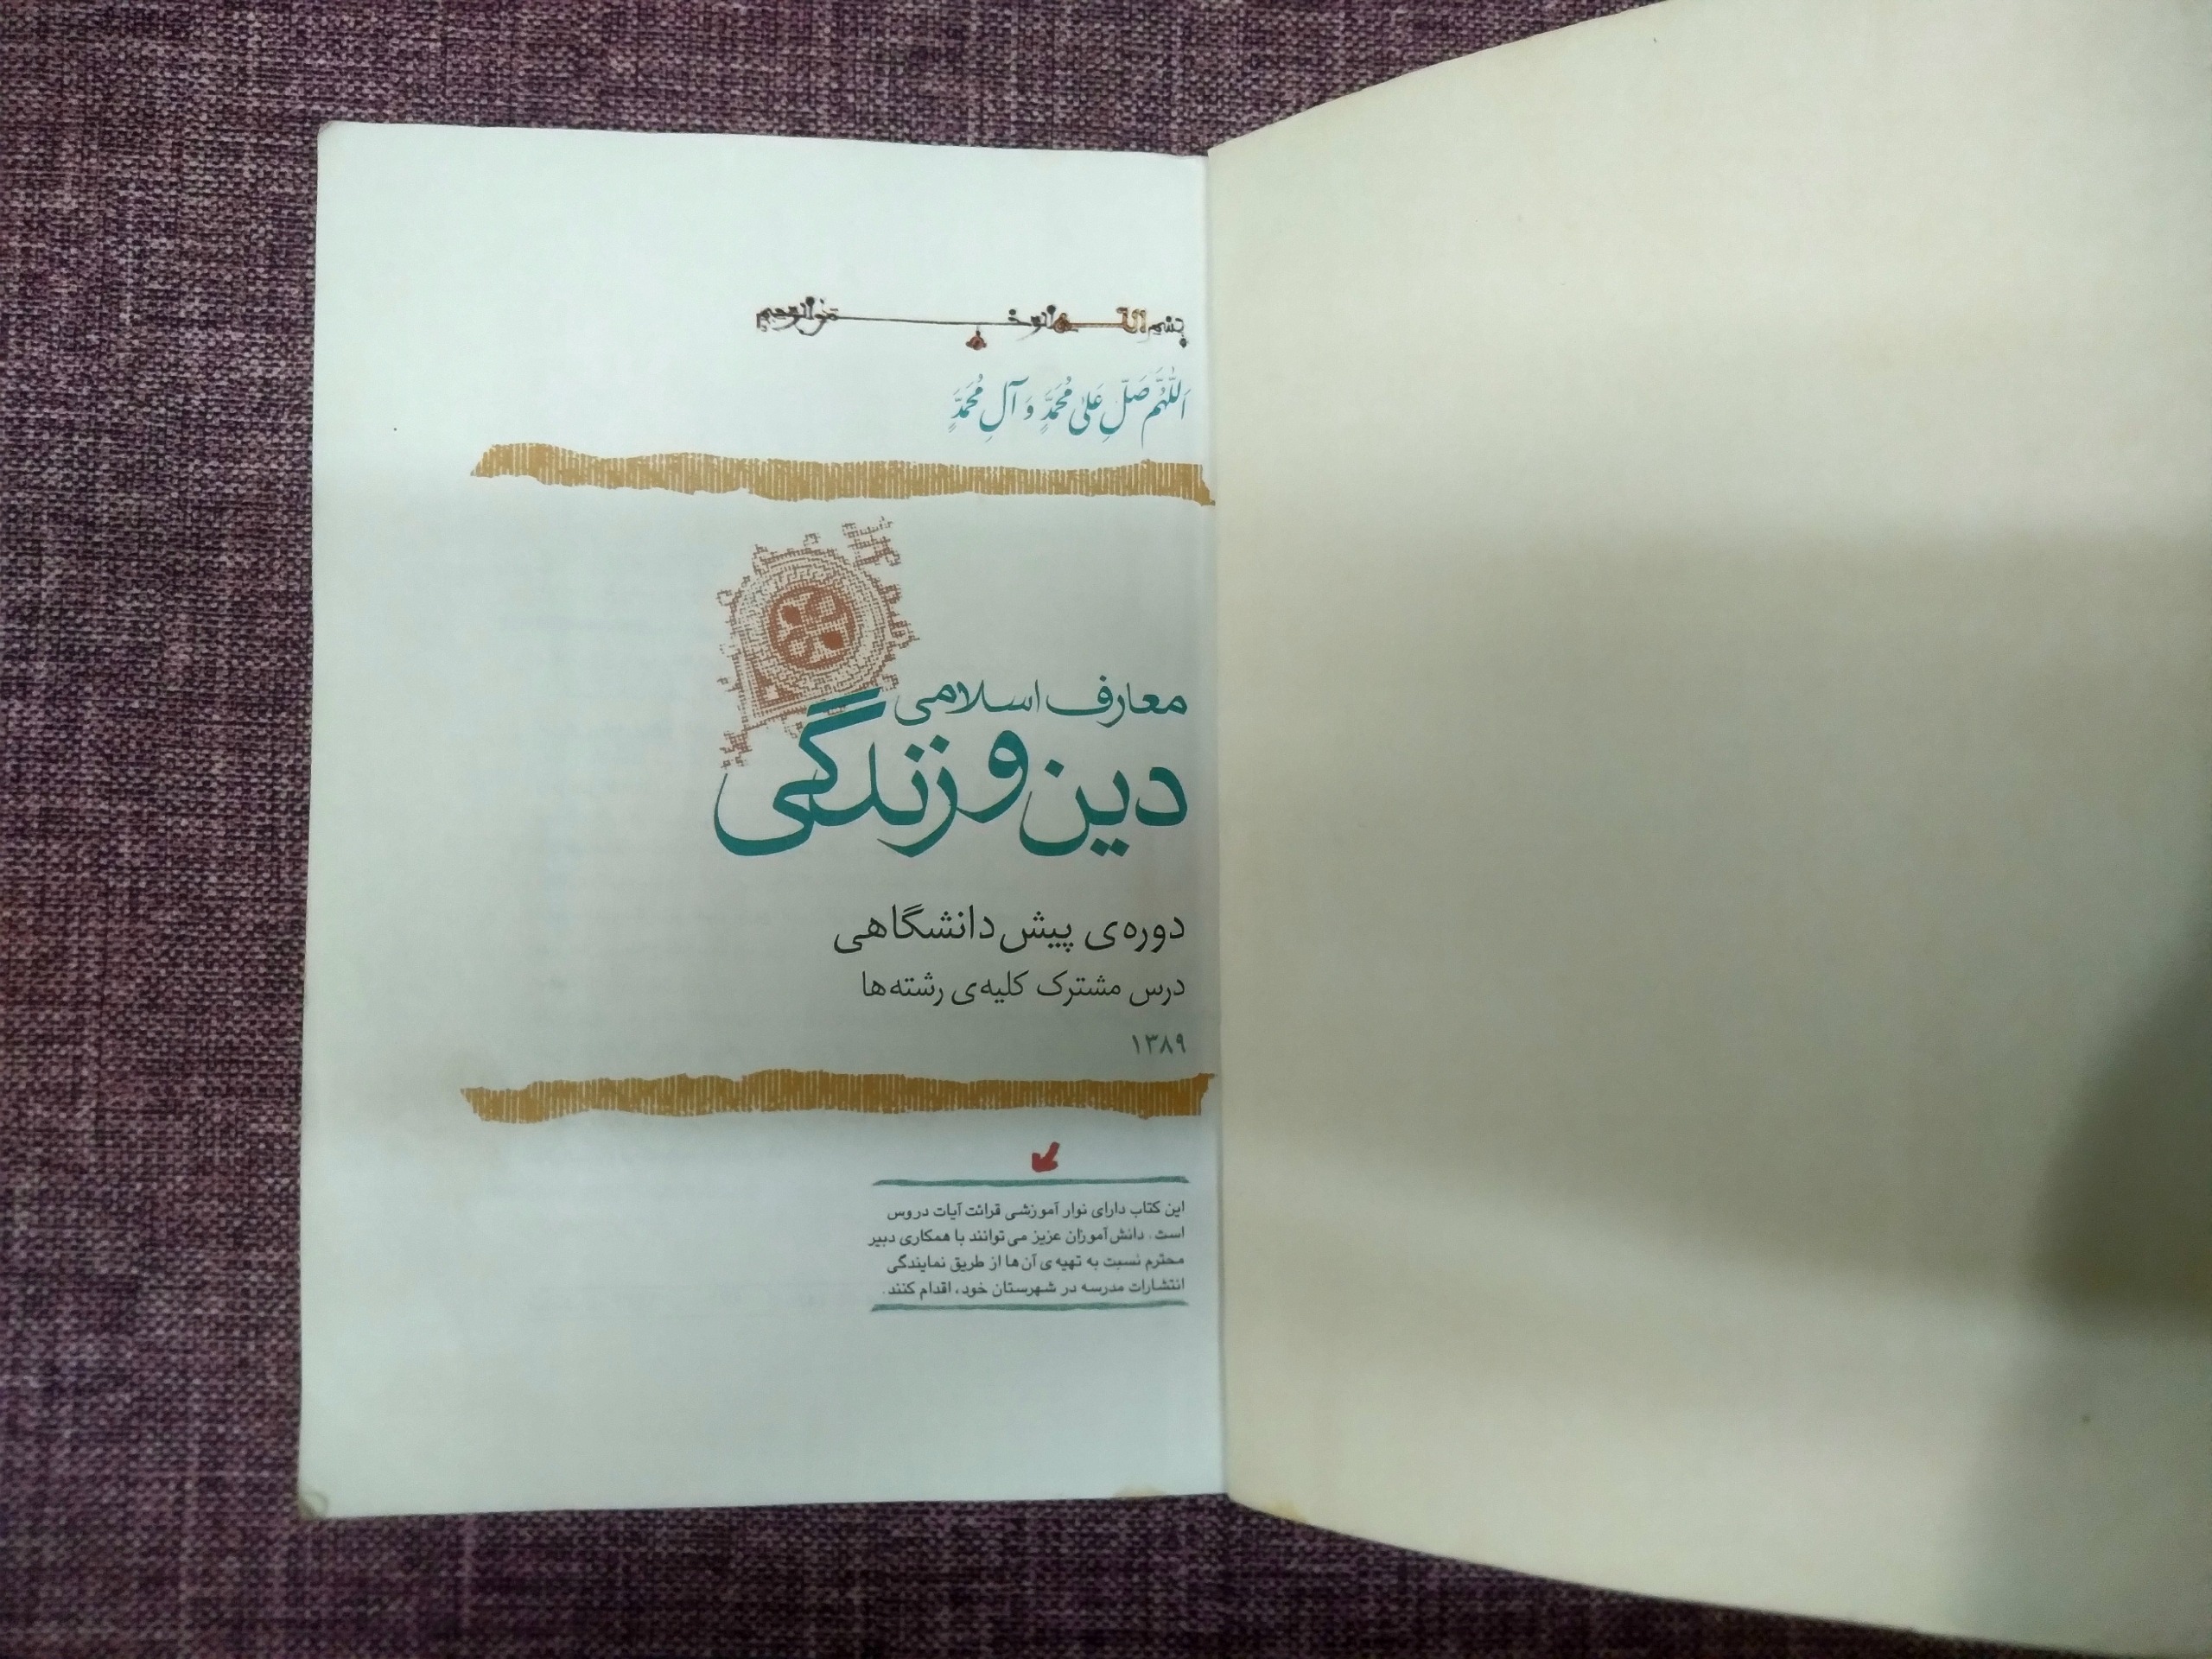 بسم الله الرحمن الرحیم
اَللّٰهُمَّ صَلِّ عَلیٰ مُحَمَّدٍ وَ آلِ مُحَمَّدٍ
معارف اسلامی
دین و زندگی
دوره‌ی پیش‌دانشگاهی
درس مشترک کلیه‌ی رشته‌ها
۱۳۸۹
این کتاب دارای نوار آموزشی قرائت آیات دروس
است. دانش‌آموزان عزیز می‌توانند با همکاری دبیر
محترم نسبت به تهیه‌ی آن‌ها از طریق نمایندگی
انتشارات مدرسه در شهرستان خود، اقدام کنند.